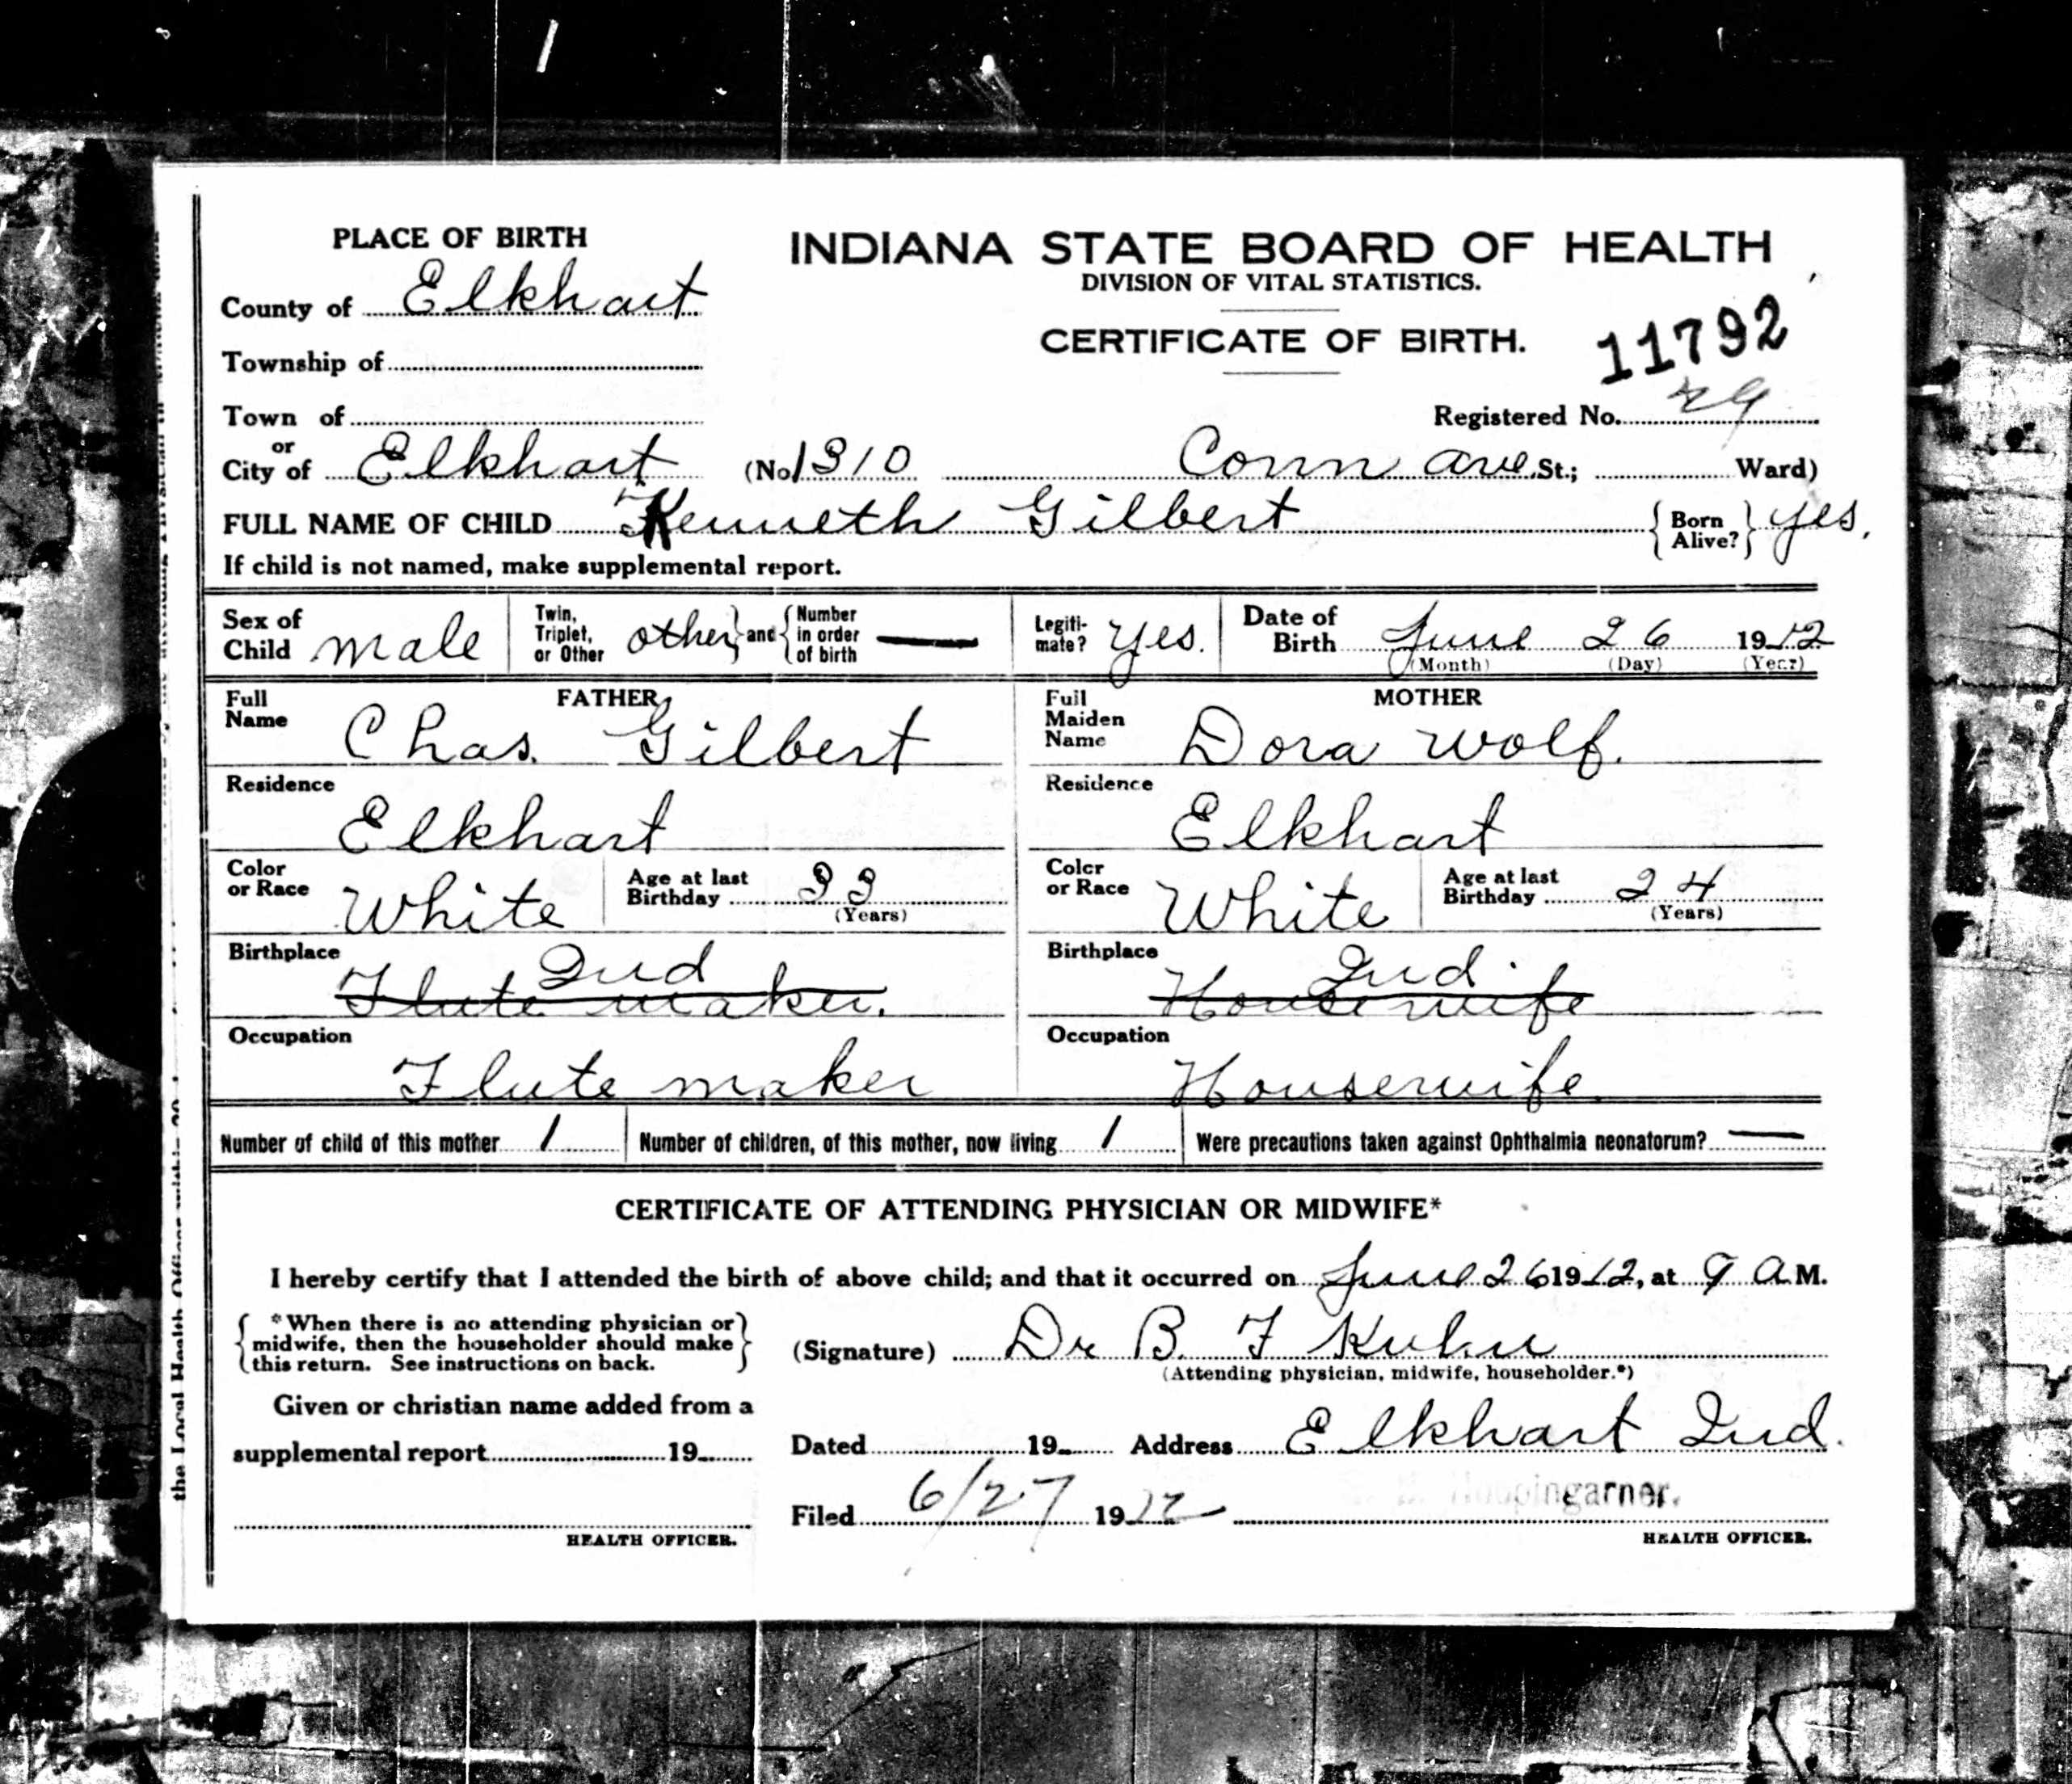 PLACE OF BIRTH
INDIANA STATE BOARD OF HEALTH
DIVISION OF VITAL STATISTICS.
County of Elkhart
CERTIFICATE OF BIRTH.
11792
Township of
Town of
Registered No. 29
or
City of Elkhart (No 1310 Conn ave St.; Ward)
FULL NAME OF CHILD Kenneth Gilbert { Born Alive? } yes.
If child is not named, make supplemental report.
Sex of Child male Twin, Triplet, or Other other } and { Number in order of birth — Legiti-mate? yes. Date of Birth June 26 1912
(Month) (Day) (Year)
FATHER MOTHER
Full Name Chas. Gilbert Full Maiden Name Dora Wolf.
Residence Elkhart Residence Elkhart
Color or Race White Age at last Birthday 33 (Years) Color or Race White Age at last Birthday 24 (Years)
Birthplace Ind Birthplace Ind.
Flute maker. Housewife
Occupation Flute maker Occupation Housewife.
Number of child of this mother 1 Number of children, of this mother, now living 1 Were precautions taken against Ophthalmia neonatorum? —
CERTIFICATE OF ATTENDING PHYSICIAN OR MIDWIFE*
I hereby certify that I attended the birth of above child; and that it occurred on June 26 1912, at 9 A M.
{ *When there is no attending physician or midwife, then the householder should make this return. See instructions on back. }
(Signature) Dr B. F Kuhn
(Attending physician, midwife, householder.*)
Given or christian name added from a
supplemental report 19
Dated 19 Address Elkhart Ind.
Filed 6/27 1912 Hoopingarner.
HEALTH OFFICER. HEALTH OFFICER.
the Local Health Officer within